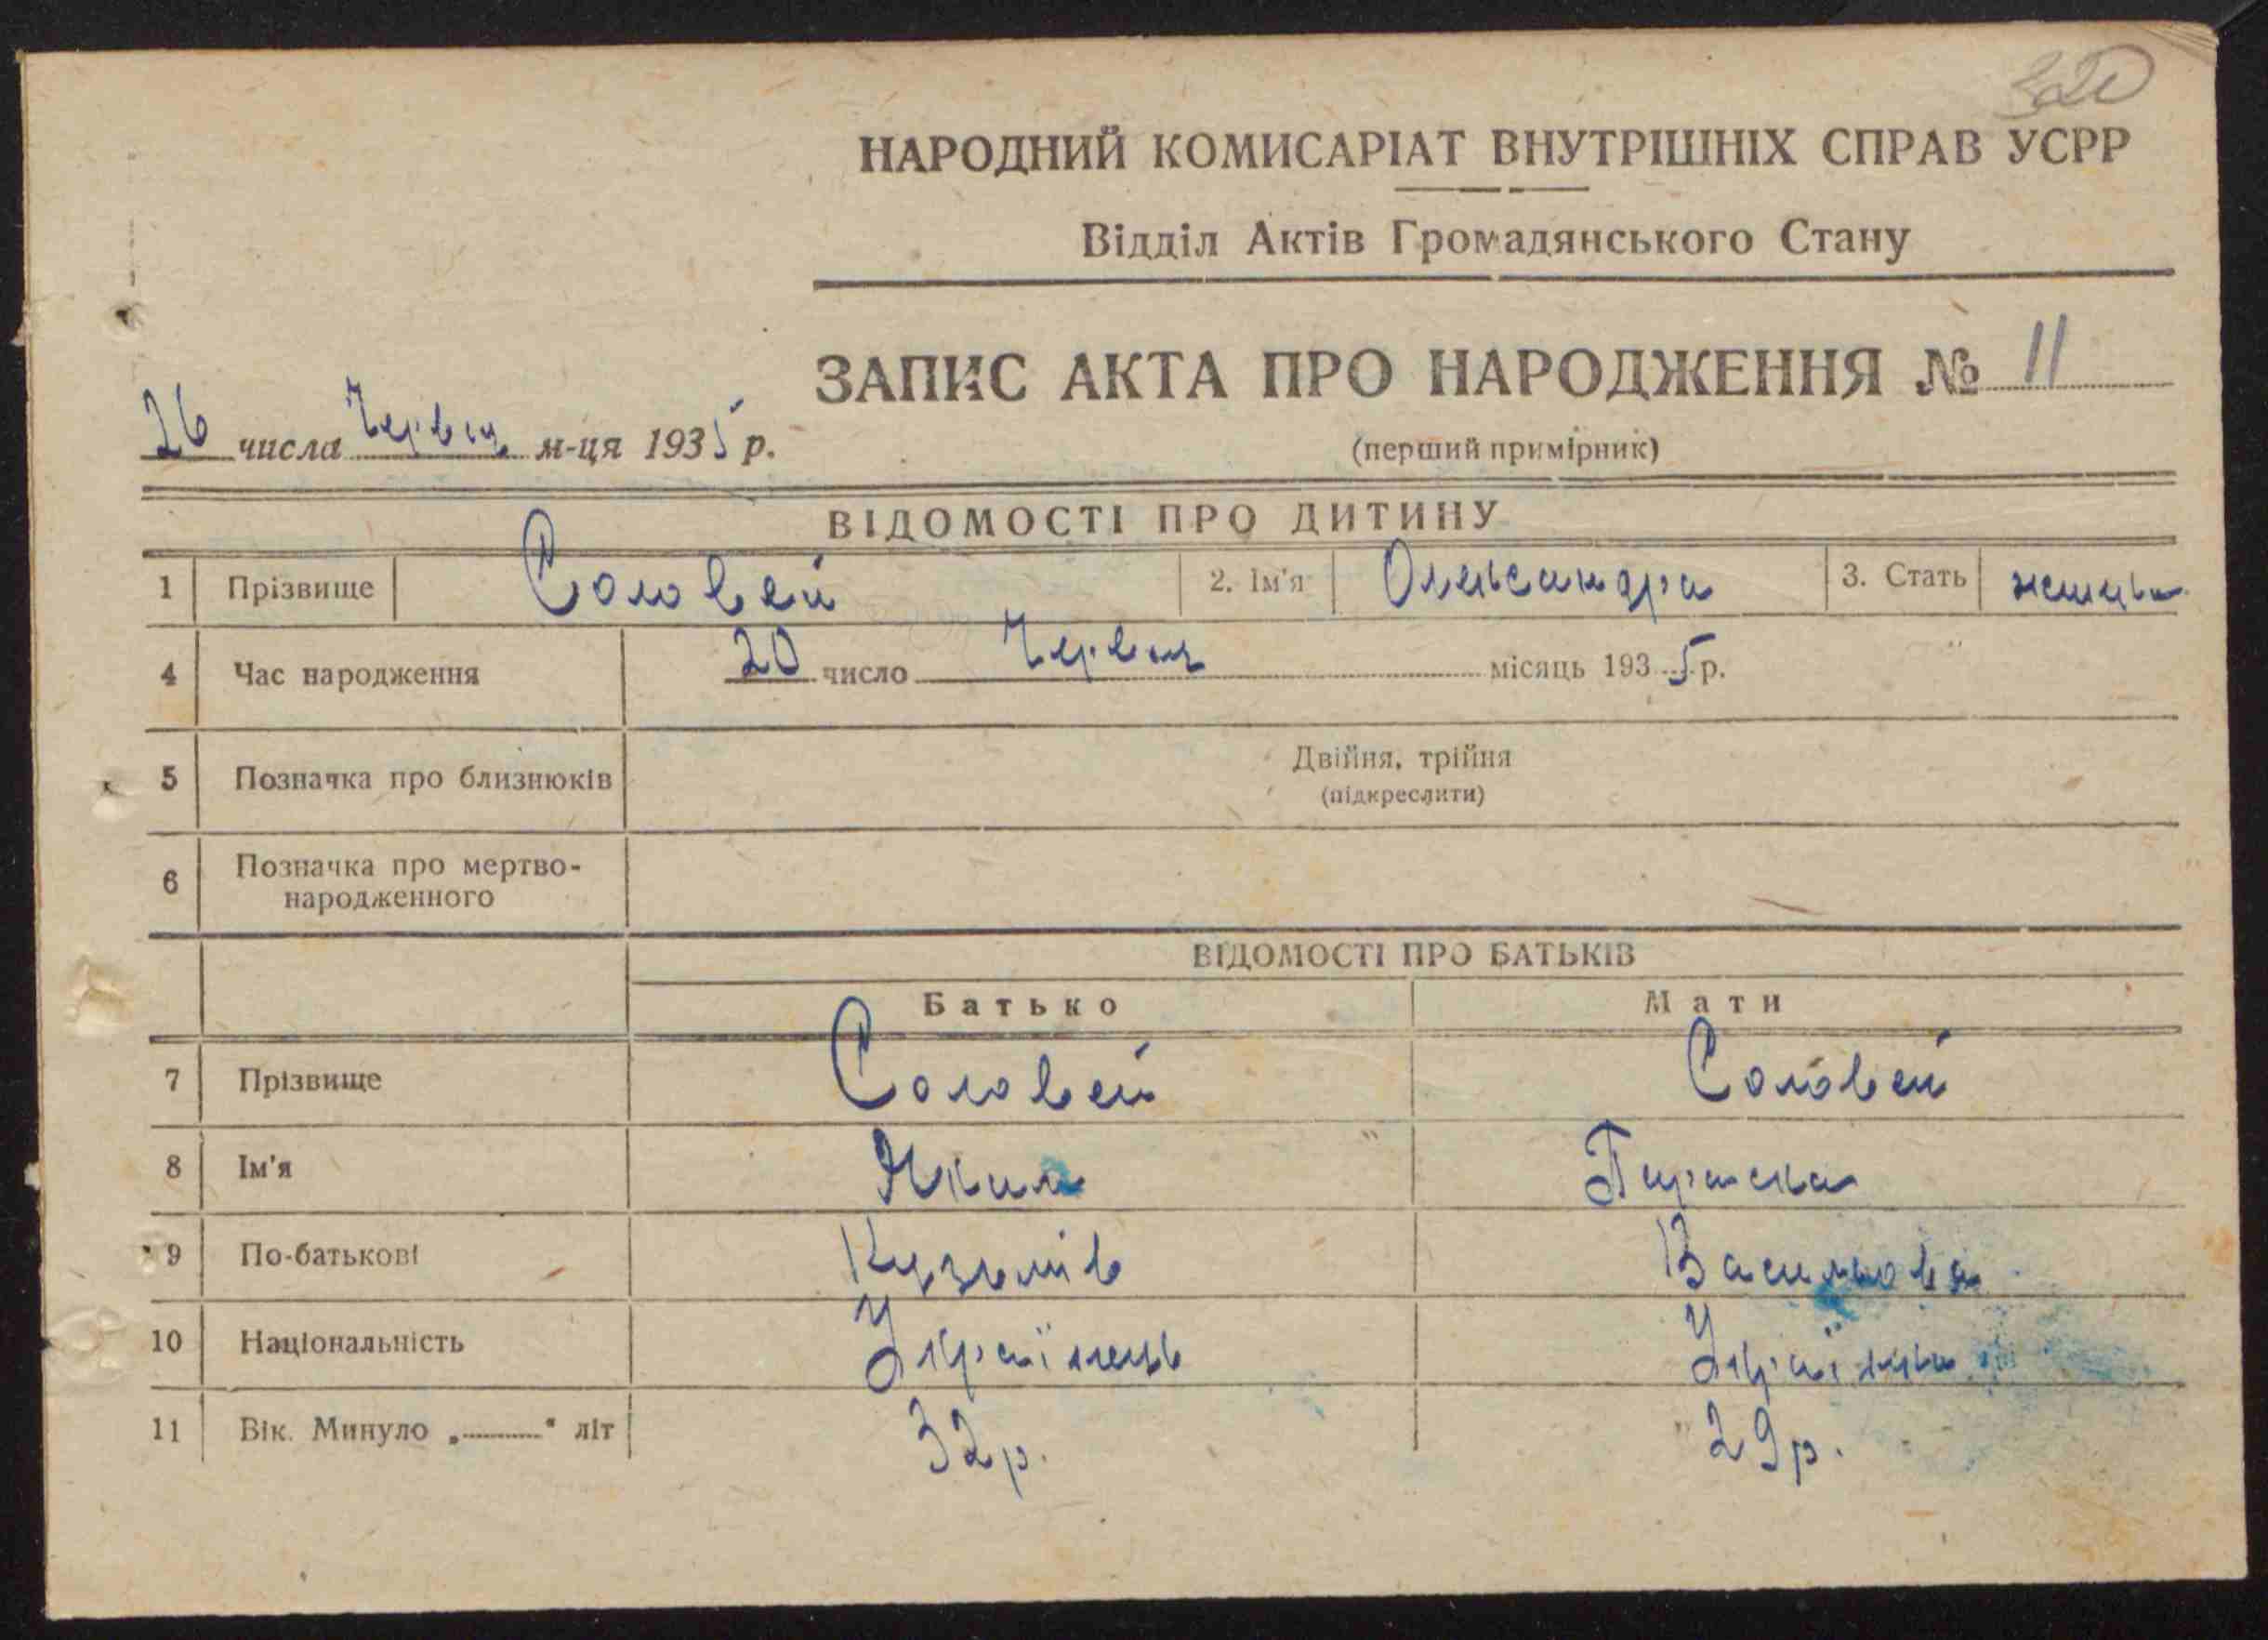 320
НАРОДНИЙ КОМИСАРІАТ ВНУТРІШНІХ СПРАВ УСРР
Відділ Актів Громадянського Стану
ЗАПИС АКТА ПРО НАРОДЖЕННЯ № 11
26 числа Червня м-ця 1935 р.
(перший примірник)
ВІДОМОСТІ ПРО ДИТИНУ
1 Прізвище Соловей 2. Ім'я Олександра 3. Стать
4 Час народження 20 число Червня місяць 1935 р.
5 Позначка про близнюків Двійня, трійня
(підкреслити)
6 Позначка про мертво-
народженного
ВІДОМОСТІ ПРО БАТЬКІВ
Батько Мати
7 Прізвище Соловей Соловей
8 Ім'я Параска
9 По-батькові Кузьмів Васильова
10 Національність Українець Українка
11 Вік. Минуло „ “ літ 32 р. 29 р.